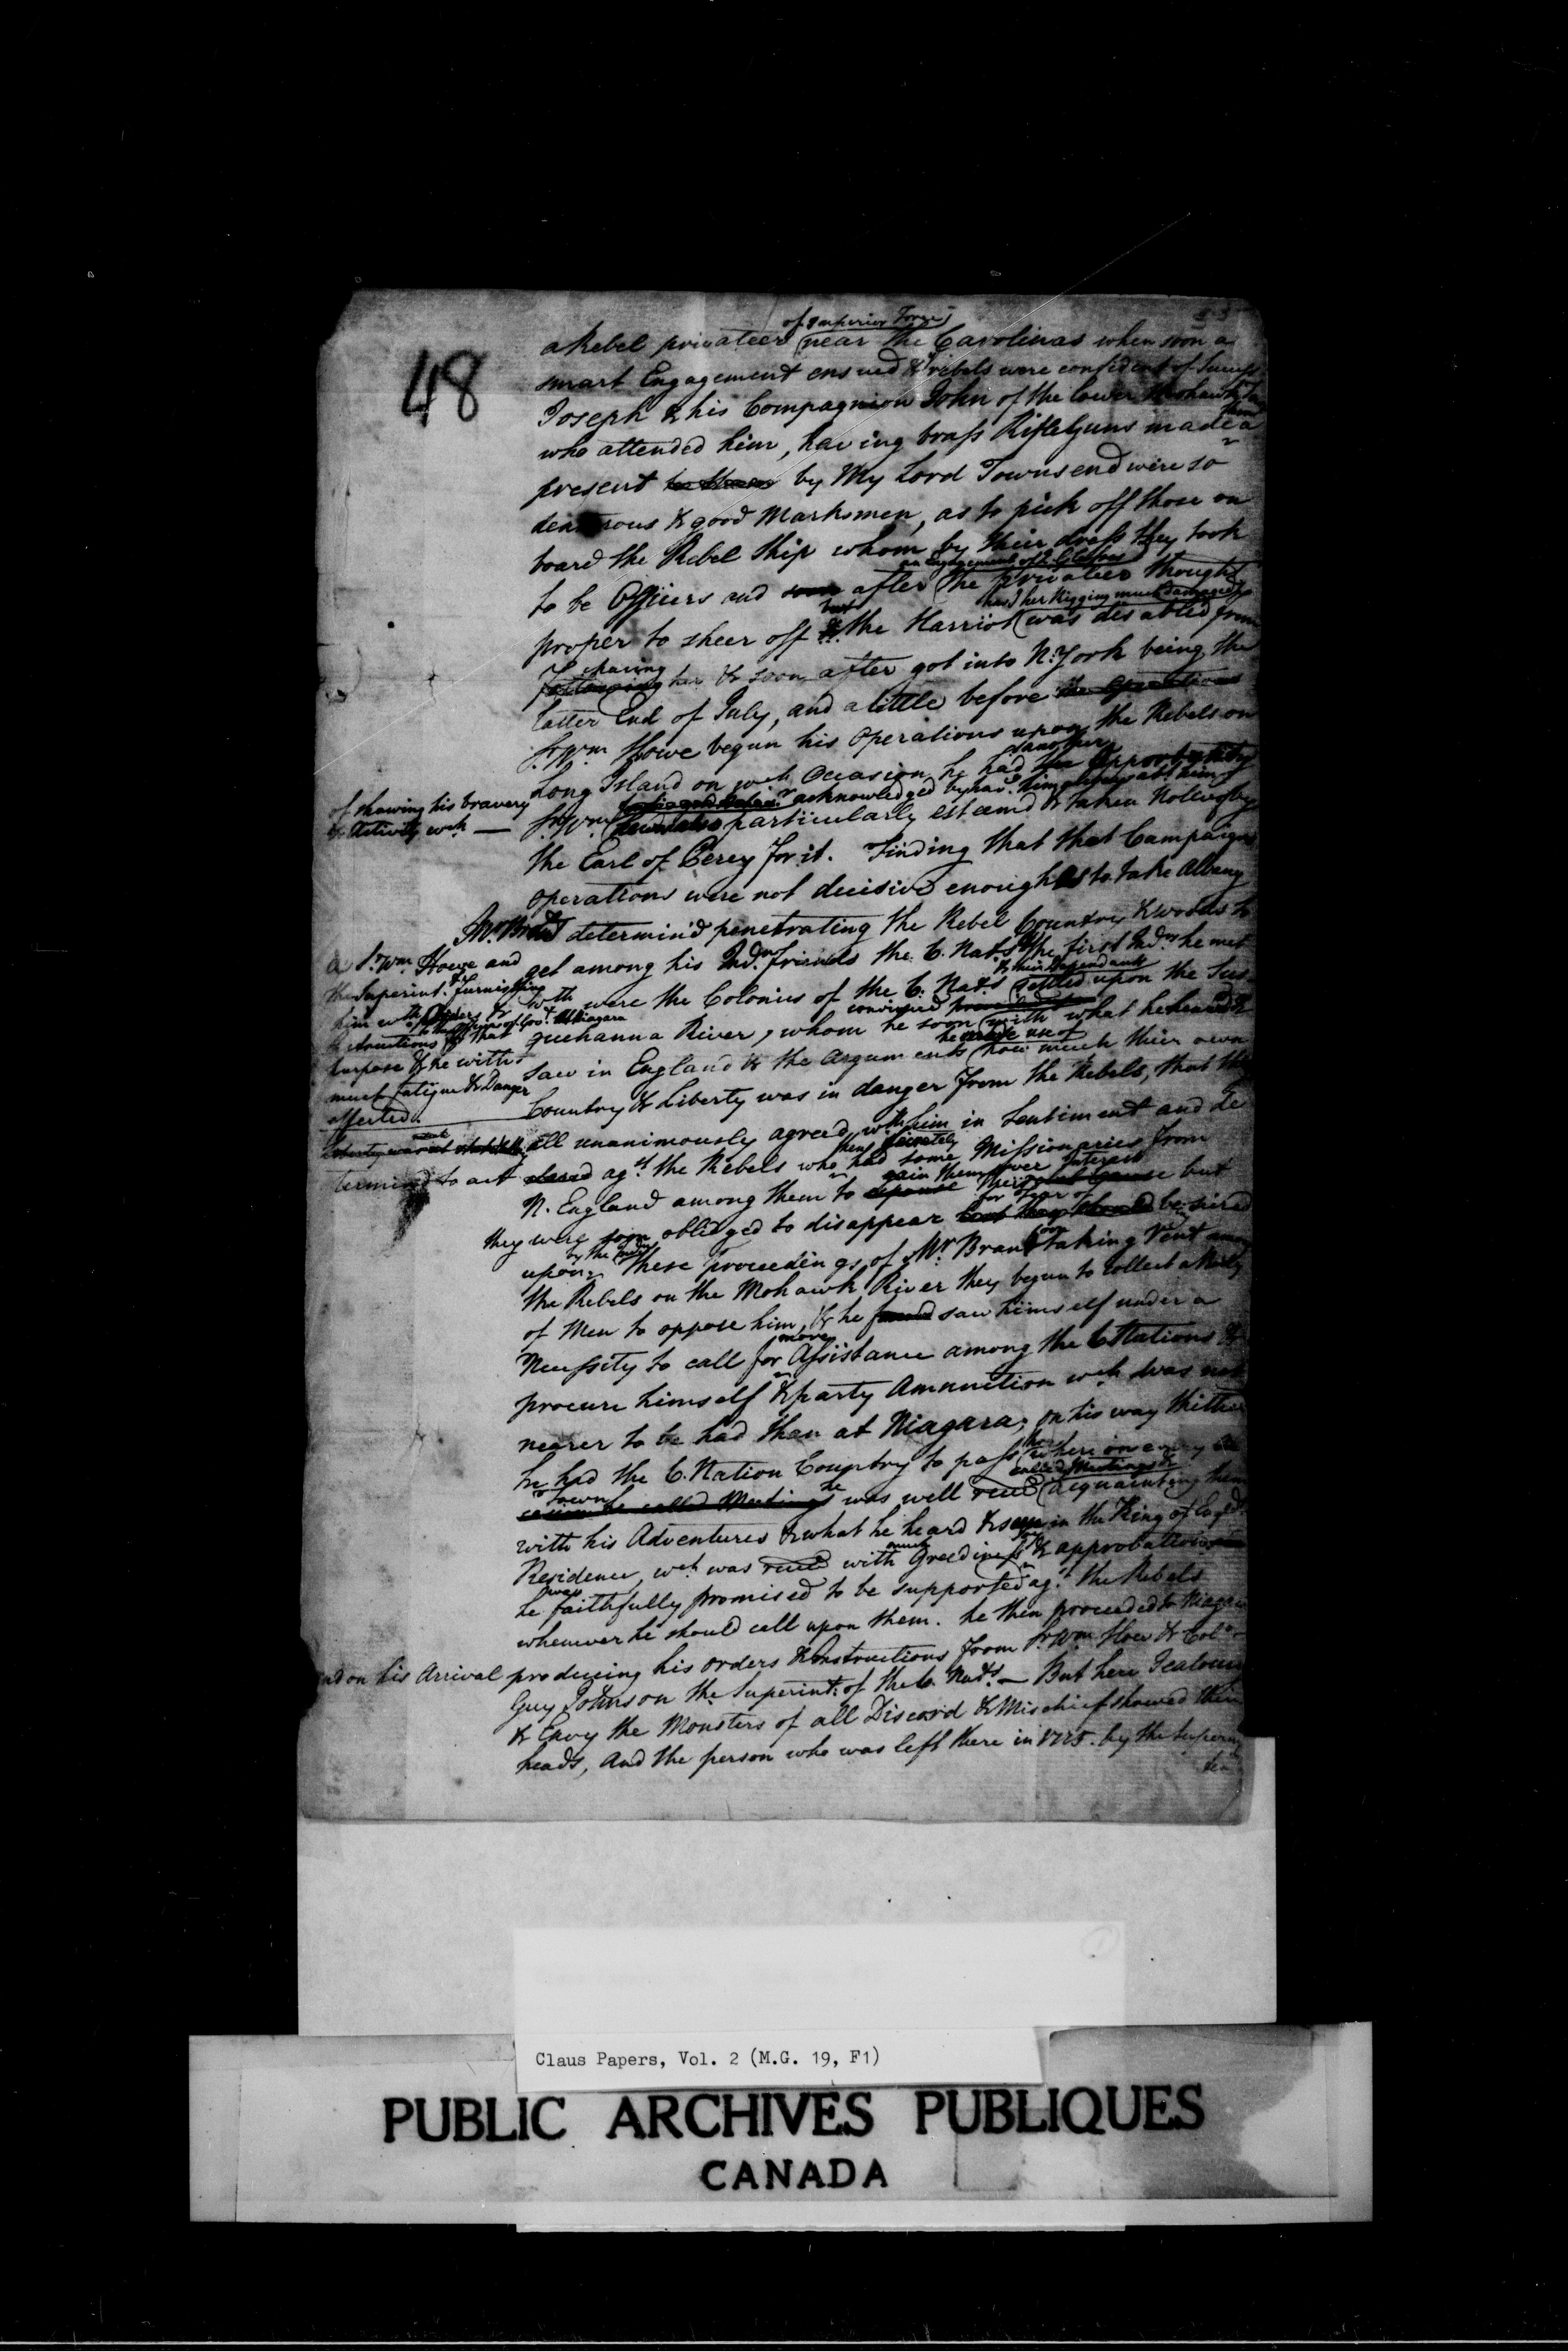 48
of Superior Force
a Rebel privateer near the Carolinas when soon a
smart Engagement ensued & ye rebels were confident of Success
Joseph & his Compagnion John of the lower Mohawk
who attended him, having brass Rifle Guns made a
present by My Lord Townsend were so
dexterous & good Marksmen, as to pick off those on
board the Rebel Ship whom by their dress they took
an Engagement of
to be Officers and soon after the privateer thought
but had her Rigging much damaged &
proper to sheer off the Harriot was disabled from
chaceing
following her & soon after got into N: York being the
latter End of July, and a little before the Operations
Sr. Wm Howe begun his Operations upon the Rebels on
another
Long Island on wch Occasion he had an Opportunity
of shewing his bravery
& Activity wch —
acknowledged by
Sr. Wm. particularly esteemd & taken Notice of by
the Earl of Percy for it. Finding that that Campaigns
operations were not decisive enough as to take Albany
Mr. Brant determin'd penetrating the Rebel Country & woods to
get among his Indn. friends the 6. Nats the first Inds he met
Sr. Wm. Howe and
the Superintt. furnishing
him with Orders &
Instructions for that
purpose & he with
much fatigue & Danger
affected.
& their Dependants
with were the Colonies of the 6. Nats settled upon the Sus
convinced
quehanna River, whom he soon with what he heard &
he made use of
saw in England & the Arguments how much their own
Country & Liberty was in danger from the Rebels, that they
all unanimously agreed with him in Sentiment and de
then secretly
termined to act agst the Rebels who had some Missionaries from
gain them over Interest
N. England among them to espouse their Cause but
for fear of
they were soon obliged to disappear lest they should be seized
by the Inds soon
upon. These proceedings of Mr. Brant taking Vent among
the Rebels on the Mohawk River they begun to collect a Body
of Men to oppose him, & he found saw himself under a
more
Necessity to call for Assistance among the 6 Nations &
procure himself & party Amunition wch was not
nearer to be had than at Niagara; on his way thither
he had the 6. Nation Country to pass where in every
Town called Meetings &
he called Meetings he was well recd acquainting them
with his Adventures & what he heard & saw in the King of Engds
much
Residence, wch was recd with Greediness & approbation
was
he faithfully promised to be supported agt the Rebels
whenever he should call upon them. he then proceeded to Niagara
and on his Arrival producing his orders & Instructions from Sr. Wm. Howe & Colo
Guy Johnson the Superintt. of the 6. Nats. — But here Jealousy
& Envy the Monsters of all Discord & Mischief showed their
heads, And the person who was left there in 1775. by the Superin
ten
Claus Papers, Vol. 2 (M.G. 19, F1)
PUBLIC ARCHIVES PUBLIQUES
CANADA